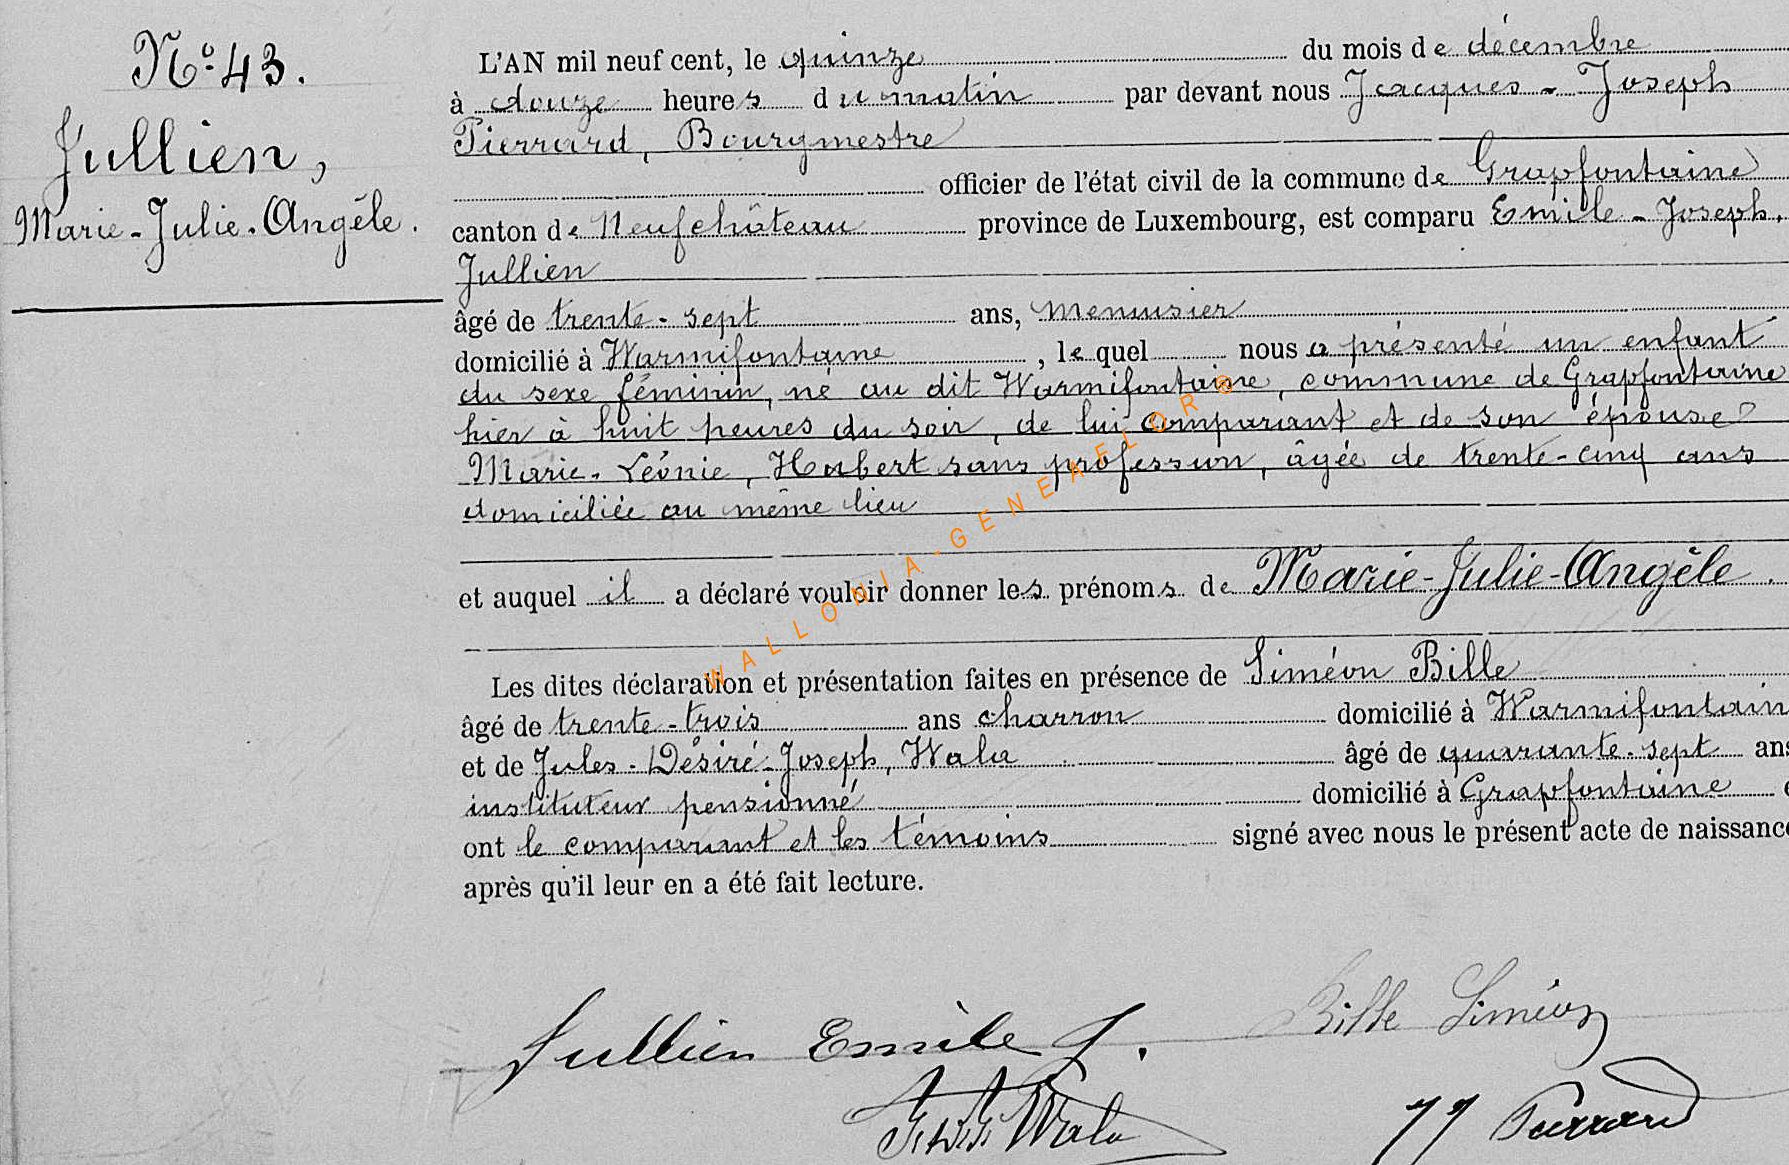 N° 43.
Jullien,
Marie-Julie-Angèle.
L'AN mil neuf cent, le quinze du mois de décembre
à douze heures du matin par devant nous Jacques-Joseph
Pierrard, Bourgmestre
officier de l'état civil de la commune de Grapfontaine
canton de Neufchâteau province de Luxembourg, est comparu Emile-Joseph.
Jullien
âgé de trente-sept ans, menuisier
domicilié à Warmifontaine, lequel nous a présenté un enfant
du sexe féminin, né au dit Warmifontaine, commune de Grapfontaine
hier à huit heures du soir, de lui comparant et de son épouse
Marie-Léonie, Hubert sans profession, âgée de trente-cinq ans
domiciliée au même lieu
et auquel il a déclaré vouloir donner les prénoms de Marie-Julie-Angèle.
Les dites déclaration et présentation faites en présence de Siméon Bille
âgé de trente-trois ans charron domicilié à Warmifontain
et de Jules-Désiré-Joseph, Wala âgé de quarante-sept ans
instituteur pensionné domicilié à Grapfontaine e
ont le comparant et les témoins signé avec nous le présent acte de naissance
après qu'il leur en a été fait lecture.
WALLONIA-GENEAFLORG
Jullien Emile J.
Bille Siméon
J.D.J. Wala
JJ Pierrard